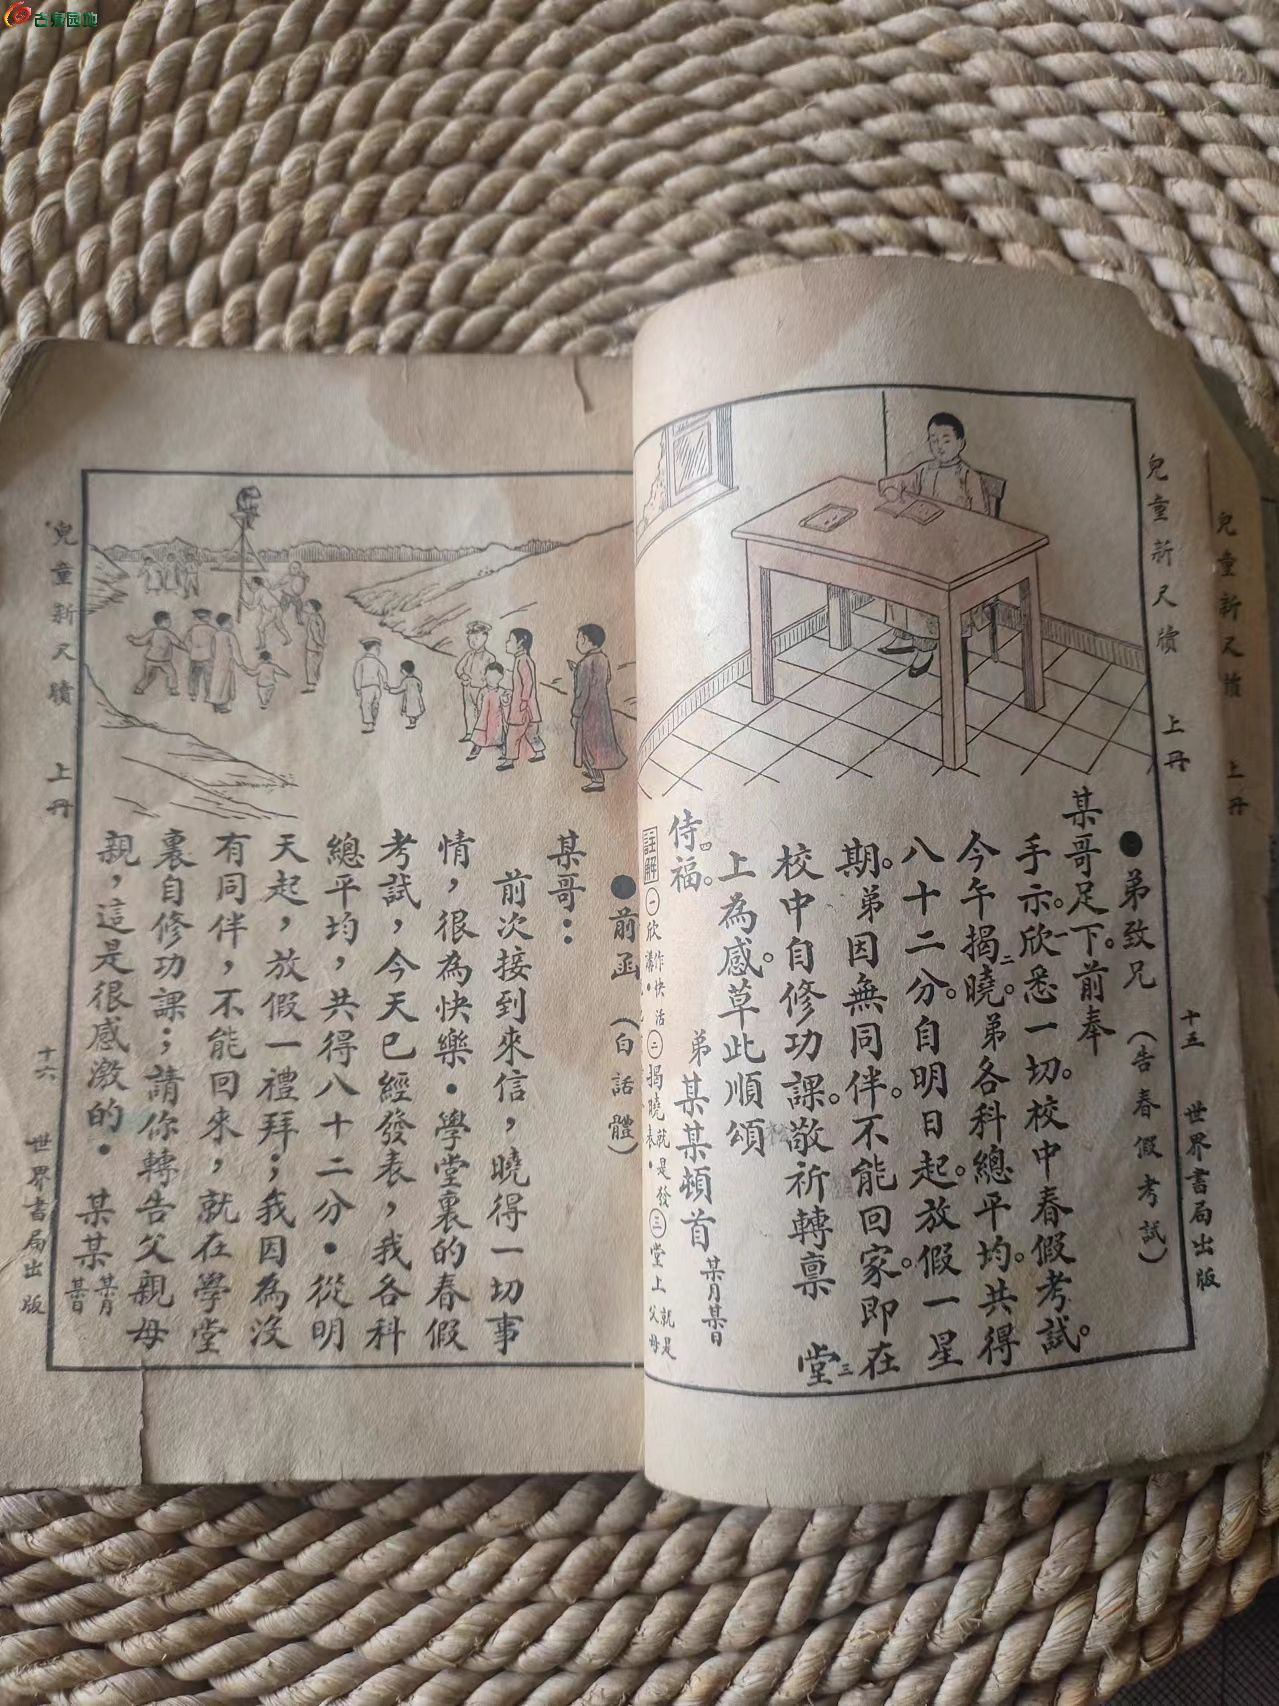 古泉园地
兒童新尺牘 上册
十五 世界書局出版
●弟致兄(告春假考試)
某哥足下。前奉
手示。欣一悉一切。校中春假考試。
今午揭二曉。弟各科總平均。共得
八十二分。自明日起。放假一星
期。弟因無同伴。不能回家。即在
校中自修功課。敬祈轉稟 堂三
上為感。草此順頌
侍四福。 弟某某頓首 某月某日
註解 ㊀欣作快活講。㊁揭曉就是發表。㊂堂上就是父母
兒童新尺牘 上册
●前函(白話體)
某哥:
前次接到來信,曉得一切事
情,很為快樂.學堂裏的春假
考試,今天已經發表,我各科
總平均,共得八十二分.從明
天起,放假一禮拜;我因為沒
有同伴,不能回來,就在學堂
裏自修功課;請你轉告父親母
親,這是很感激的. 某某 某月某日
十六 世界書局出版
兒童新尺牘 上册